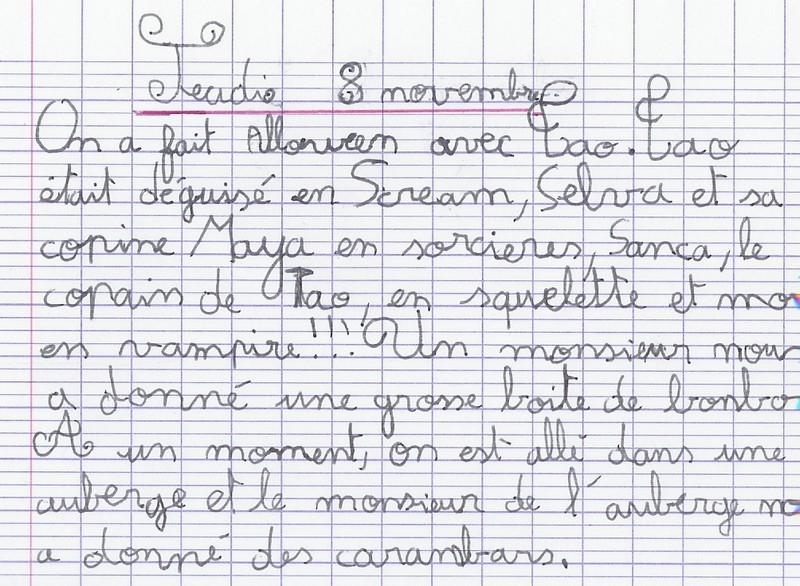 Jeudi 8 novembre
On a fait Allorween avec Tao. Tao
était déguisé en Scream, Selva et sa
copine Maya en sorcieres, Sanca, le
copain de Tao, en squelette et mo
en vampire!!! Un monsieur nour
a donné une grosse boite de bonbo
A un moment, on est allé dans une
auberge et le monsieur de l'auberge no
a donné des carambars.